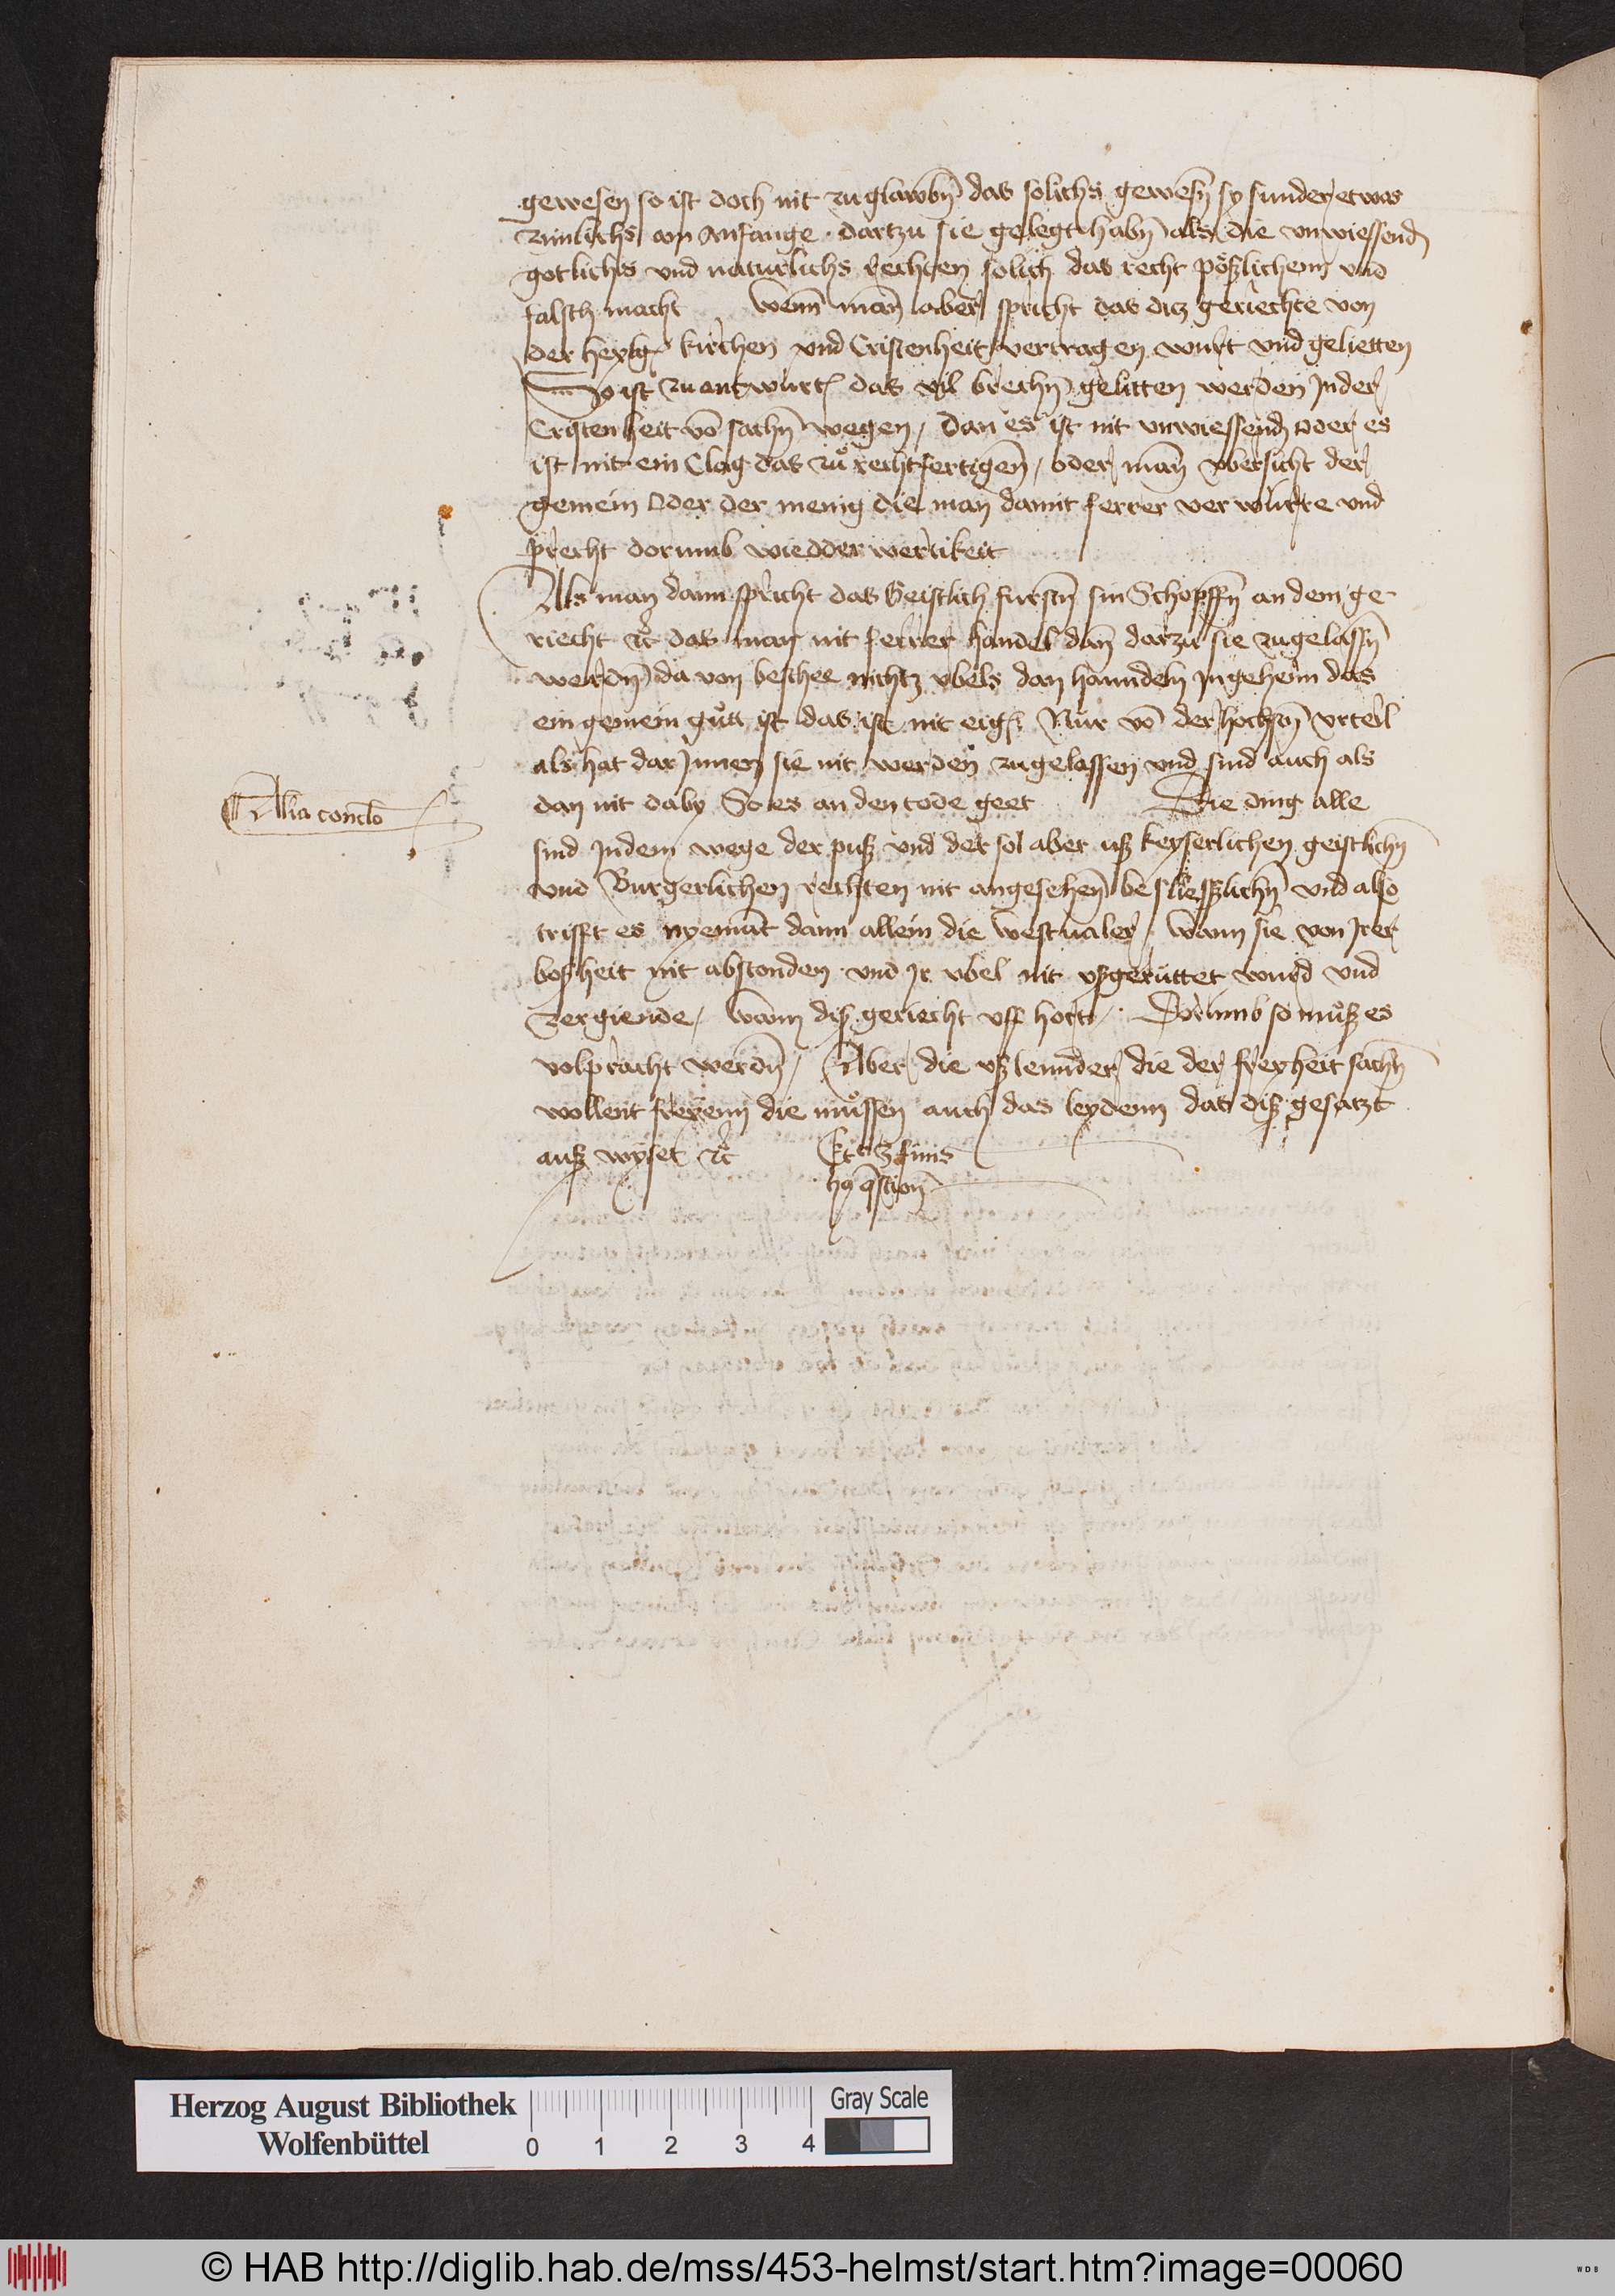 gewesen so ist doch nit zu glawbn̄ das solichs gewesn̄ sy sunder etwas
zimlichs am Anfange · dartzu sie gelegt habn̄ als die vnwiessend
gotlichs vnd naturlichs rechten solich das recht pößlichenn vnd
falsch macht Wenn man̄ aber spricht das ditz geriechte von
der heylg kirchen vnd Cristenheit vertragen wurt vnd gelietten
So ist zu antwurt das vil brechn̄ gelitten werden Jn der
Cristenheit vō sachn̄ wegen / Dan es ist nit vnwiessend oder es
ist nit ein Clag das zů rechtfertigen̄ / oder man̄ vbersicht der
gemein Oder der menig die man damit ferrer verwurte vnd
precht dorumb wiedderwertikeit
Als man dann spricht das Geistlich furstn̄ sin Schopffn̄ an dem ge
riecht ꝛc̄ das man nit ferrer handel dan̄ darzu sie zugelassn̄
werdn̄ da von beschee nichtz vbels dan hanndeln Jngeheim das
ein gemein gůtt ist das ist nit eig Nur vō der hochstn̄ vrteil
als hat dar Jnnen sie nit werden zugelassen vnd sind auch als
dan nit daby So es an den tode geet Die ding alle
sind Jndem wege der puß vnd der sol aber uß keyserlichen geistlichn̄
vnd Burgerlichen rechten nit angesehen̄ besließlichn̄ vnd also
trifft es nyemāt dann allein die westualer / Wann sie von Jrer
bosheit nit abstonden vnd Jr vbel nit vßgerüttet wurd vnd
zergiende / Wann diß geriecht vff hort / Dorumb so můß es
volpracht werdn̄ / Aber die vßlennder die der freyheit sachn̄
wollent freyenn die můssen auch das leydenn das diß gesatzt
auß wyset ꝛc̄ Et finis
hꝰ q̄stion̄
Alia conclo
Herzog August Bibliothek
Wolfenbüttel
0 1 2 3 4
Gray Scale
© HAB http://diglib.hab.de/mss/453-helmst/start.htm?image=00060
WDB